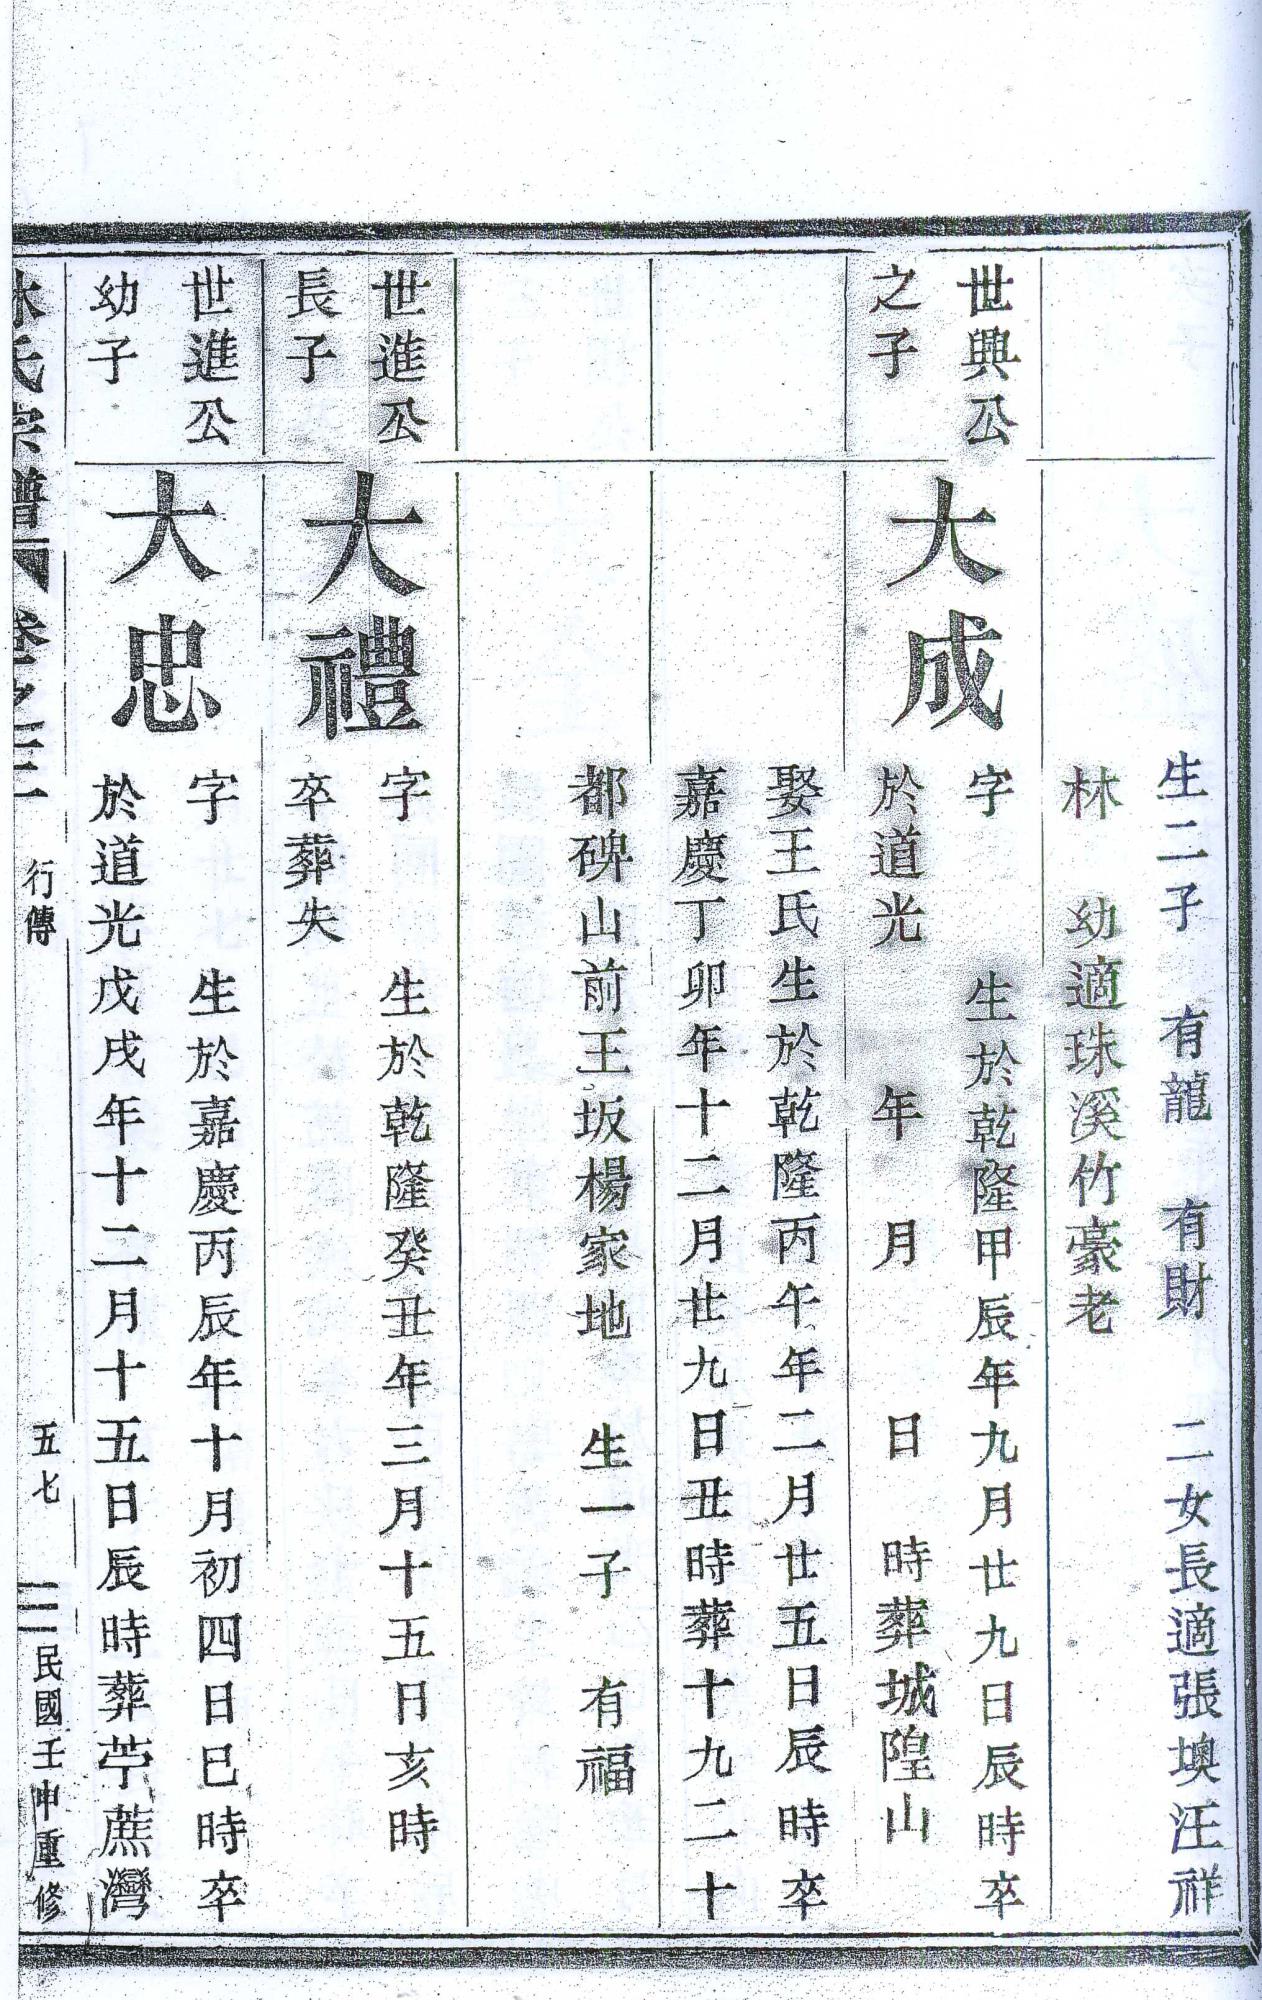 生二子　有龍　有財　二女長適張墺汪祥
林　幼適珠溪竹豪老
世興公
之子
大成
字　生於乾隆甲辰年九月廿九日辰時卒
於道光　年　月　日　時葬城隍山
娶王氏生於乾隆丙午年二月廿五日辰時卒
嘉慶丁卯年十二月廿九日丑時葬十九二十
都碑山前王坂楊家地　生一子　有福
世進公
長子
大禮
字　生於乾隆癸丑年三月十五日亥時
卒葬失
世進公
幼子
大忠
字　生於嘉慶丙辰年十月初四日巳時卒
於道光戊戌年十二月十五日辰時葬苧蔴灣
林氏宗譜　卷之三　行傳　五七　民國壬申重修